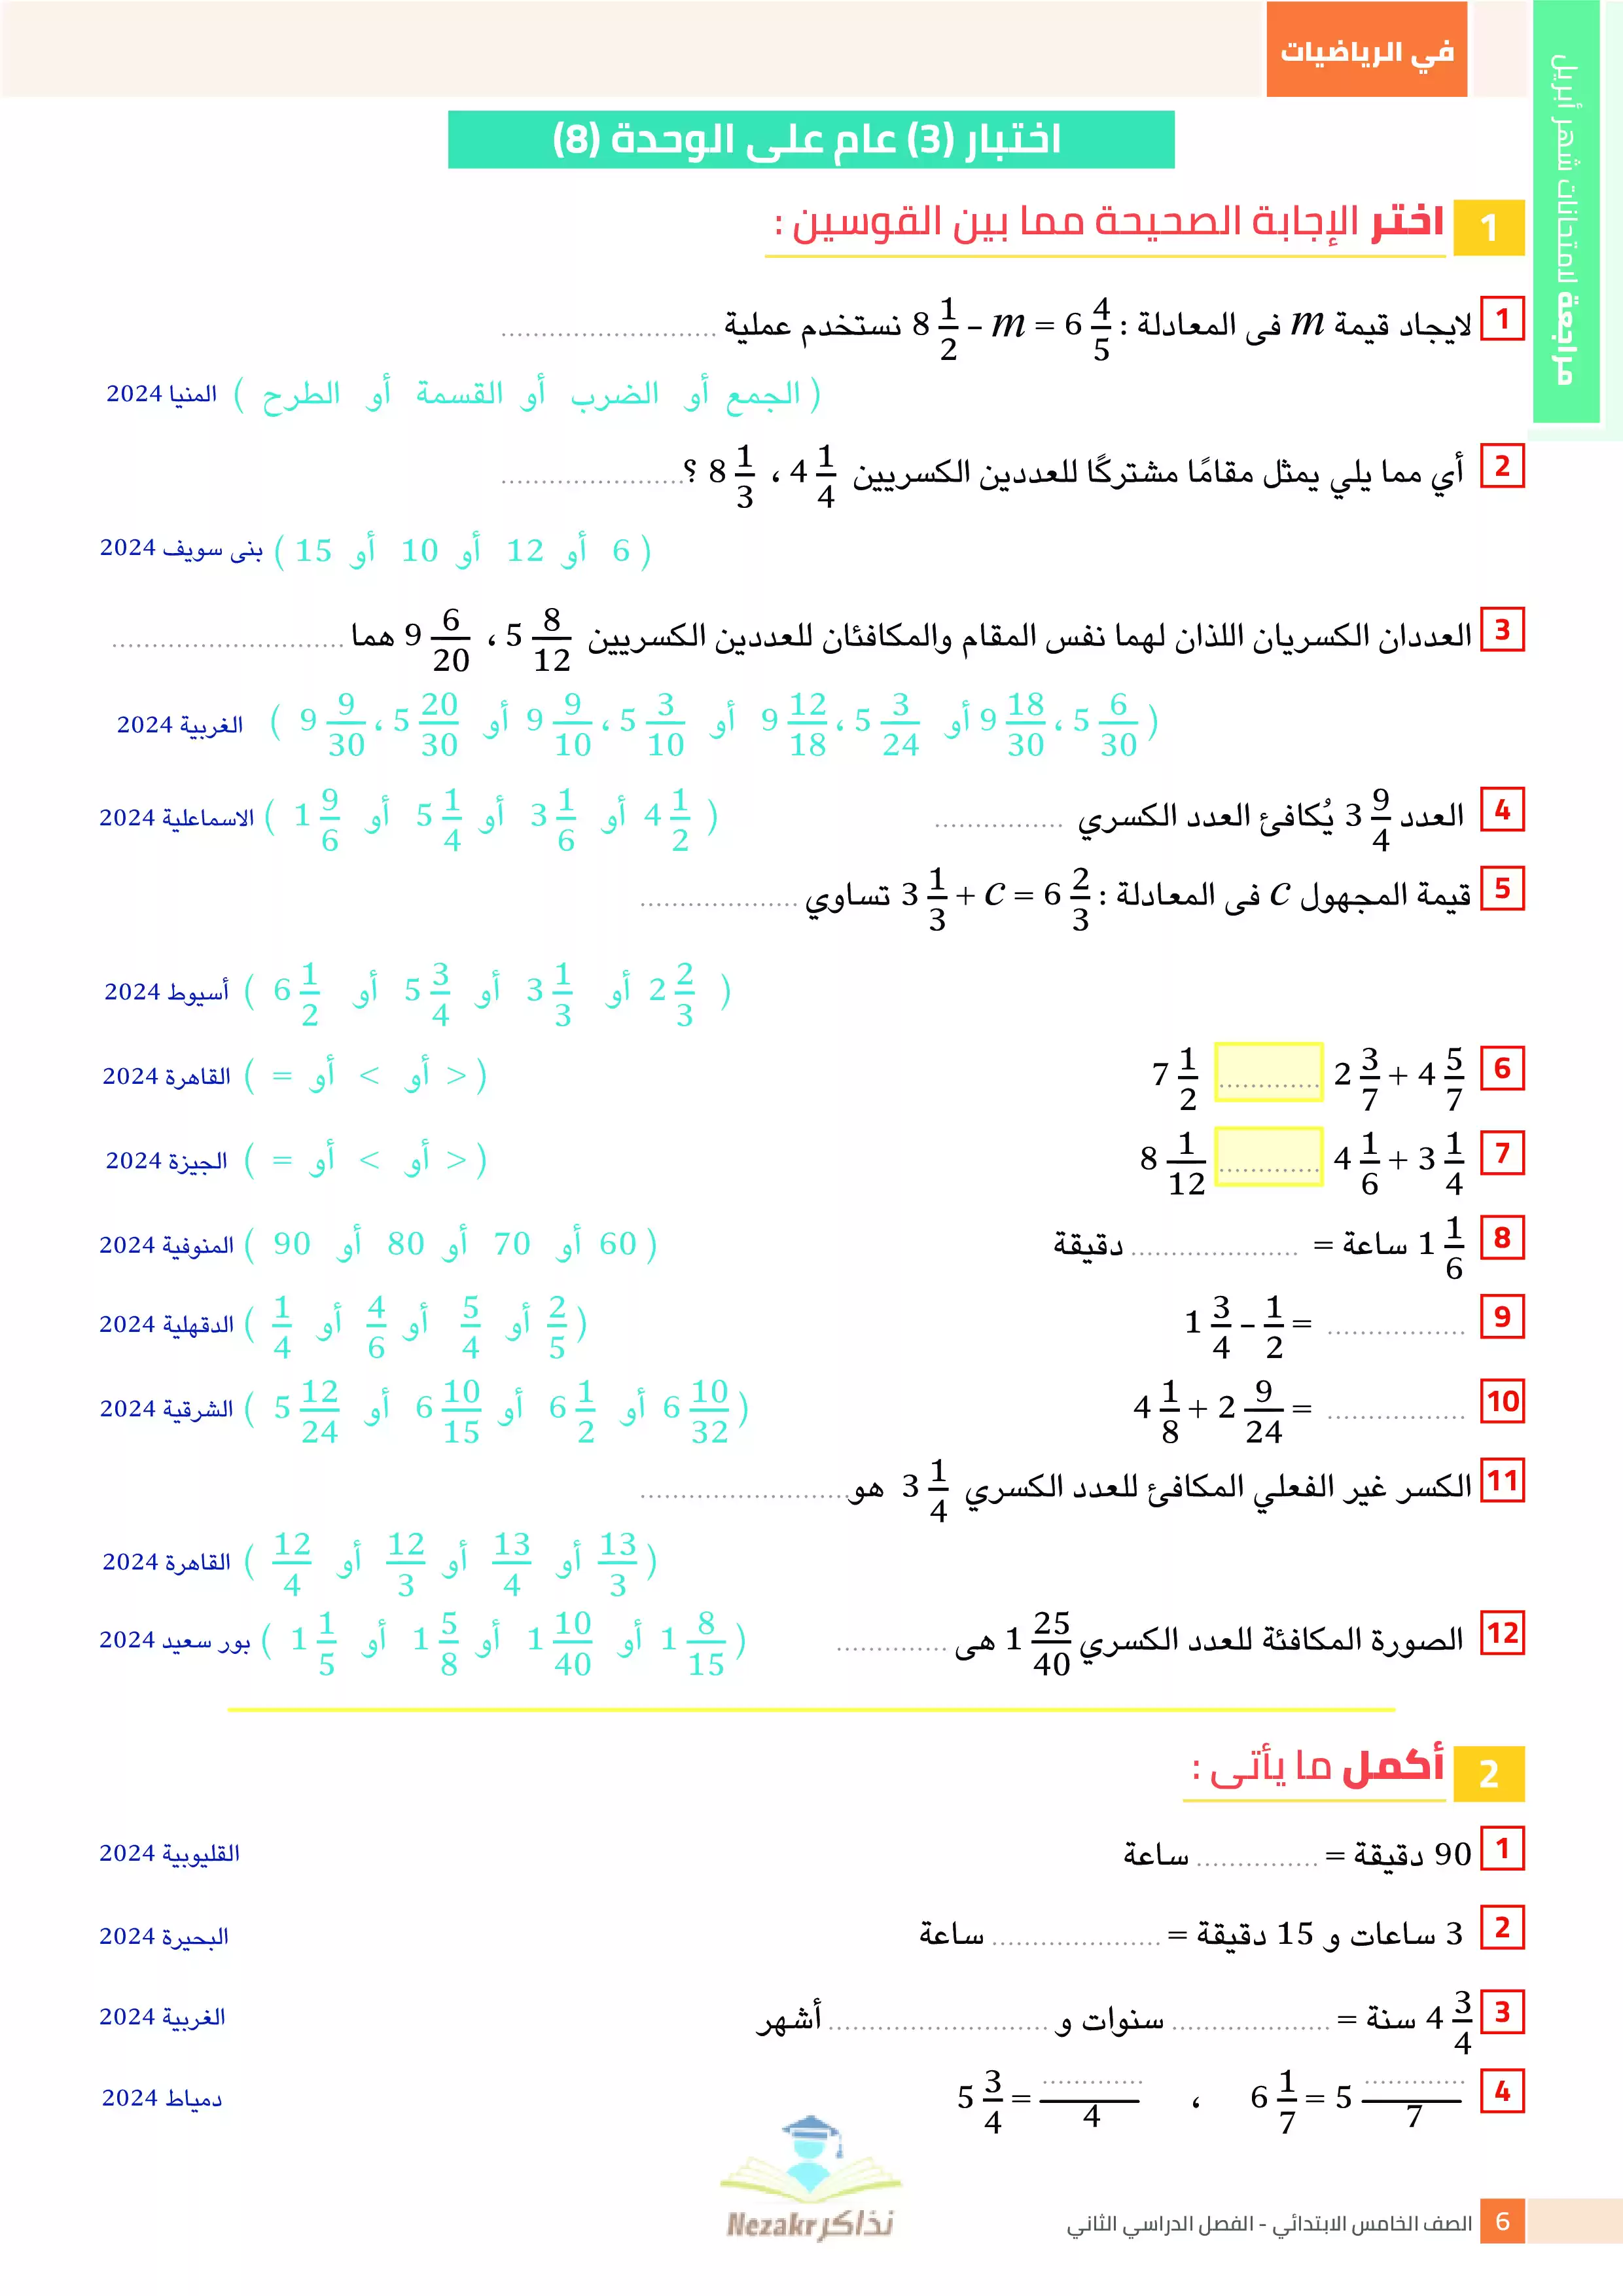 في الرياضيات
مراجعة لامتحانات شهر أبريل
اختبار (3) عام على الوحدة (8)
1 اختر الإجابة الصحيحة مما بين القوسين :
1 لايجاد قيمة m فى المعادلة : 8 1/2 - m = 6 4/5 نستخدم عملية ...........................
( الجمع أو الضرب أو القسمة أو الطرح ) المنيا 2024
2 أي مما يلي يمثل مقامًا مشتركًا للعددين الكسريين 4 1/4 ، 8 1/3 ؟.......................
( 6 أو 12 أو 10 أو 15 ) بنى سويف 2024
3 العددان الكسريان اللذان لهما نفس المقام والمكافئان للعددين الكسريين 5 8/12 ، 9 6/20 هما .............................
( 5 6/30 ، 9 18/30 أو 5 3/24 ، 9 12/18 أو 5 3/10 ، 9 9/10 أو 5 20/30 ، 9 9/30 ) الغربية 2024
4 العدد 3 9/4 يُكافئ العدد الكسري ................ ( 4 1/2 أو 3 1/6 أو 5 1/4 أو 1 9/6 ) الاسماعلية 2024
5 قيمة المجهول c فى المعادلة : 3 1/3 + c = 6 2/3 تساوي ....................
( 2 2/3 أو 3 1/3 أو 5 3/4 أو 6 1/2 ) أسيوط 2024
6 2 3/7 + 4 5/7 ............. 7 1/2 ( < أو > أو = ) القاهرة 2024
7 4 1/6 + 3 1/4 ............. 8 1/12 ( < أو > أو = ) الجيزة 2024
8 1 1/6 ساعة = ..................... دقيقة ( 60 أو 70 أو 80 أو 90 ) المنوفية 2024
9 1 3/4 - 1/2 = ................. ( 2/5 أو 5/4 أو 4/6 أو 1/4 ) الدقهلية 2024
10 4 1/8 + 2 9/24 = ................. ( 6 10/32 أو 6 1/2 أو 6 10/15 أو 5 12/24 ) الشرقية 2024
11 الكسر غير الفعلي المكافئ للعدد الكسري 3 1/4 هو..........................
( 13/3 أو 13/4 أو 12/3 أو 12/4 ) القاهرة 2024
12 الصورة المكافئة للعدد الكسري 1 25/40 هى .............. ( 1 8/15 أو 1 10/40 أو 1 5/8 أو 1 1/5 ) بور سعيد 2024
2 أكمل ما يأتى :
1 90 دقيقة = ............... ساعة القليوبية 2024
2 3 ساعات و 15 دقيقة = ..................... ساعة البحيرة 2024
3 4 3/4 سنة = .................... سنوات و ........................... أشهر الغربية 2024
4 6 1/7 = 5 ............./7 ، 5 3/4 = ............./4 دمياط 2024
نذاكر Nezakr
6 الصف الخامس الابتدائي - الفصل الدراسي الثاني